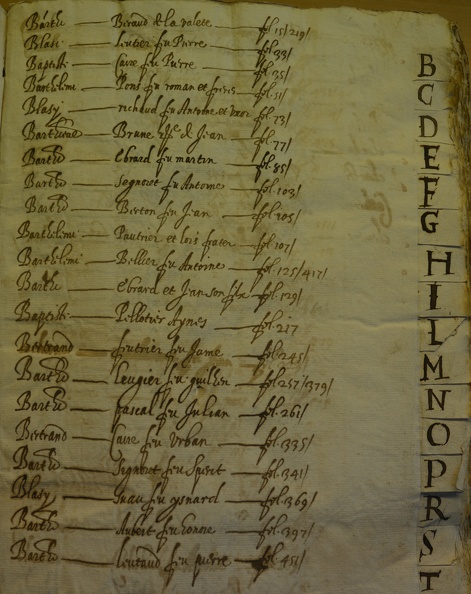 Barthe Beraud de la valete fol. 15/219/
Blasi Leutier feu Pierre fol. 33/
Baptiste Caire feu Pierre fol. 35/
Barthelemi Pons feu roman et freres fol. 51/
Blasy richaud feu Antoine fol. 73/
Barthieme Brune de Jean fol. 77/
Barthe Ebrard feu martin fol. 85/
Barthe Segnoret feu Antoine fol. 103/
Barthe Berton feu Jean fol. 105/
Barthelemi Pautrier et fol. 107/
Barthelemi Bellier feu Antoine fol. 125/417/
Barthe Ebrard et Jan son filx fol. 129/
Baptiste Pellotier Aynes fol. 217
Bertrand feutrier feu Jame fol. 245/
Barthe Leugier feu guilhen fol. 257/379/
Barthe Pascal feu Julian fol. 261/
Bertrand Caire feu Urban fol. 335/
Barthe Segnoret feu Sperit fol. 341/
Blasy Juau feu ysnard fol. 369/
Barthe Aubert feu honore fol. 397/
Barthe Leutaud feu pierre fol. 451/
B
C
D
E
F
G
H
I
L
M
N
O
P
R
S
T